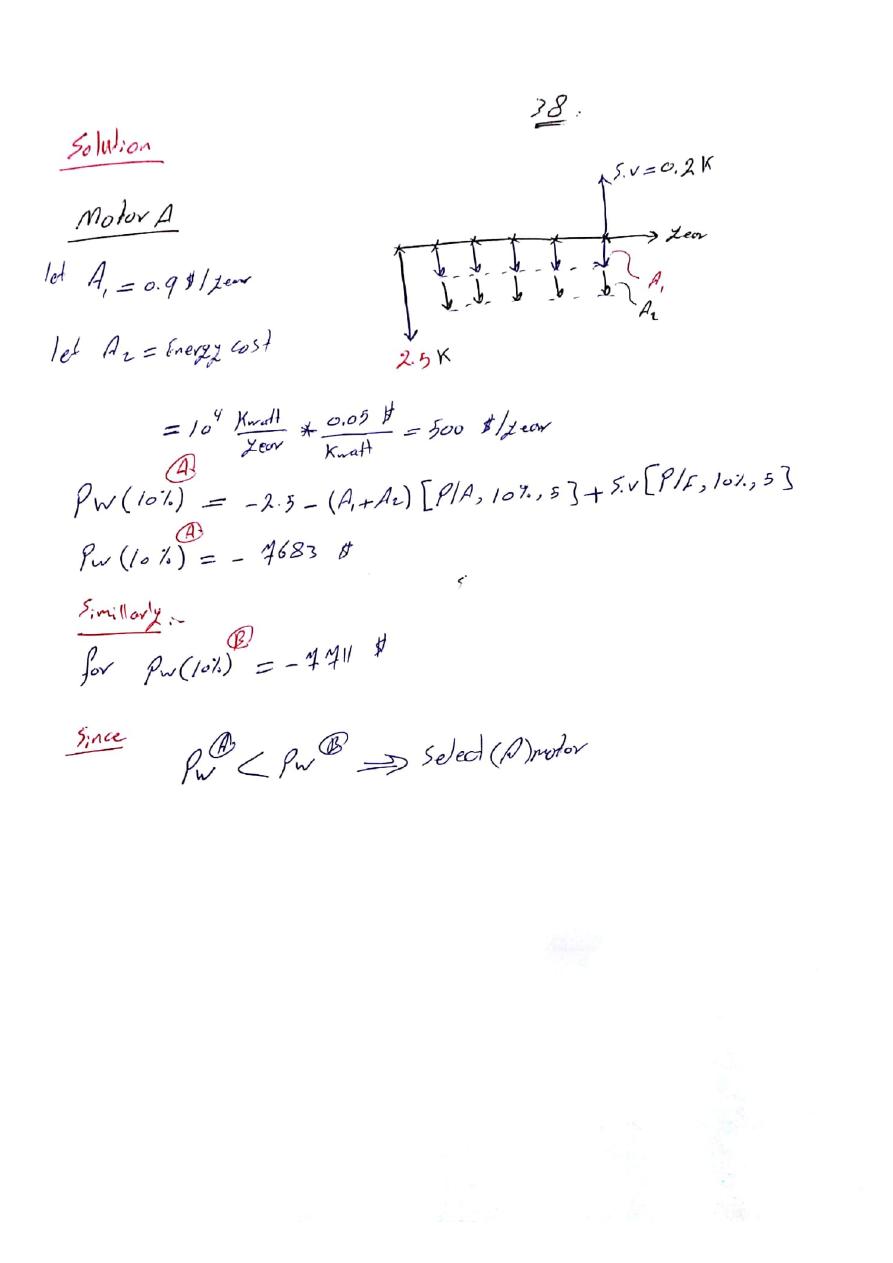 38.
Solution
S.v = 0.2 K
Motor A
Year
let A₁ = 0.9 $/year
A₁
A₂
let A₂ = Energy cost
2.5 K
= 10⁴ Kwatt/Year * 0.05 $/Kwatt = 500 $/Year
Pw(10%)Ⓐ = -2.5 - (A₁+A₂) [P/A, 10%, 5] + S.v [P/F, 10%, 5]
Pw(10%)Ⓐ = - 7683 $
Simillarly :-
for Pw(10%)Ⓑ = - 7711 $
Since PwⒶ < PwⒷ ⇒ Select (A) motor